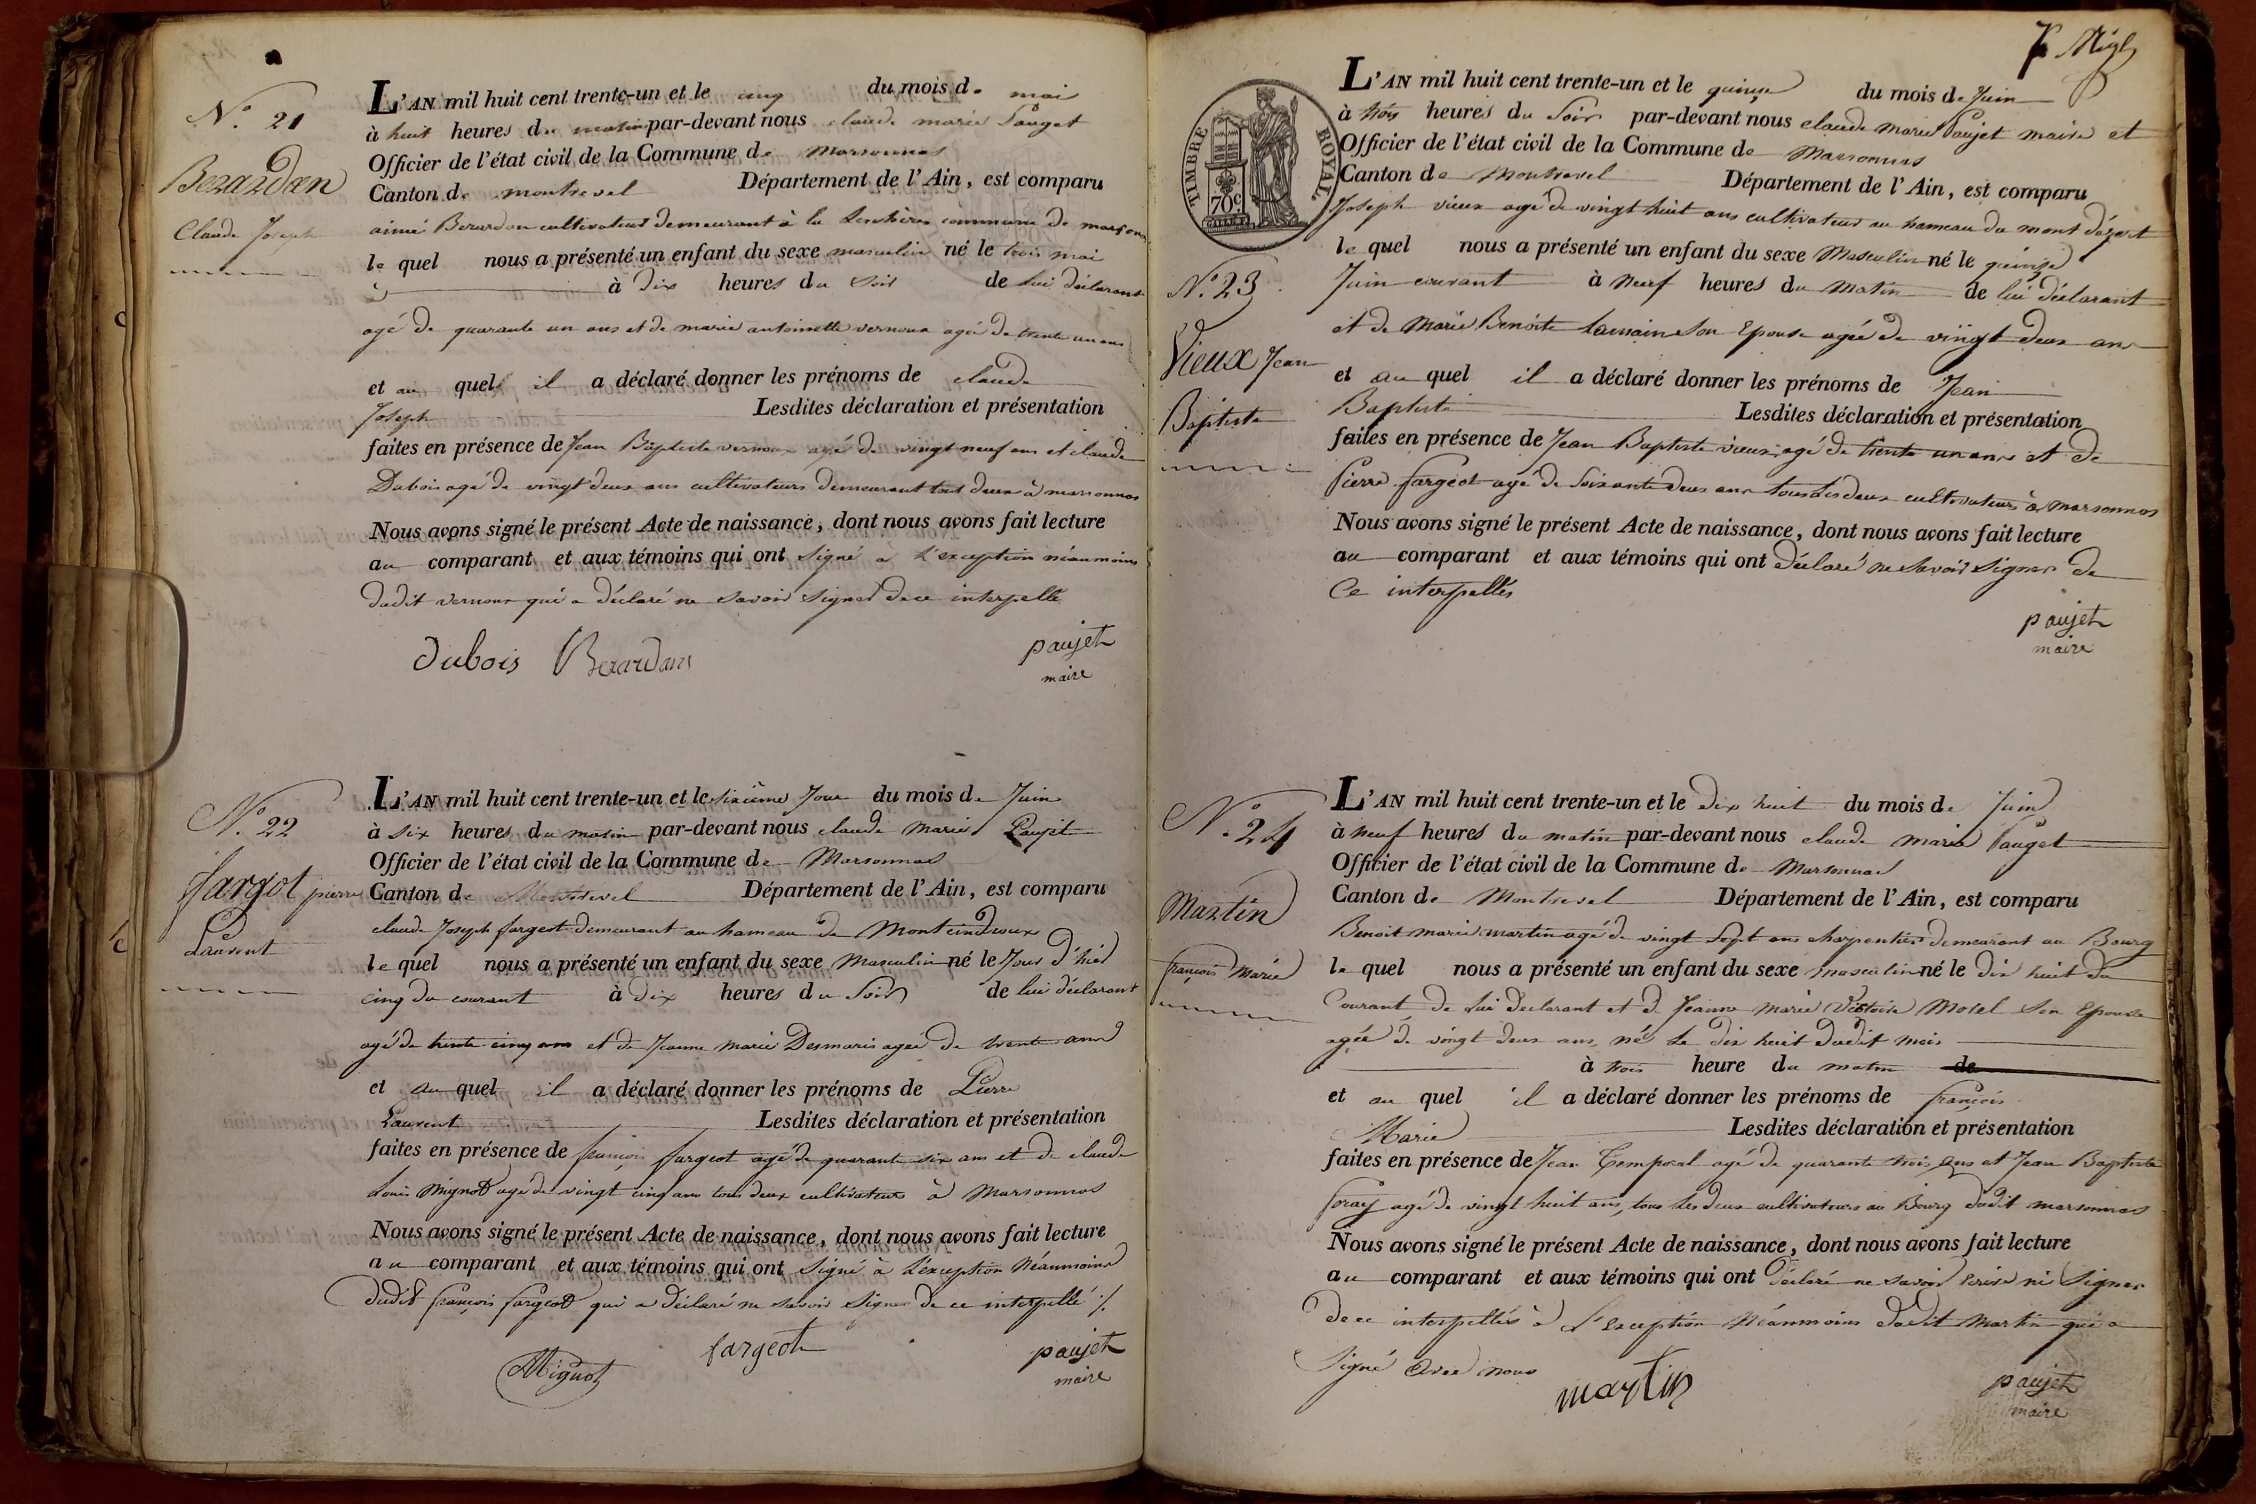 N.° 21
Berardan
Claude Joseph
L'AN mil huit cent trente-un et le cinq du mois de mai
à huit heures du matin par-devant nous claude marie Paujet
Officier de l'état civil de la Commune de marsonnas
Canton de montrevel Département de l'Ain, est comparu
aimé Berardan cultivateur demeurant à la commune de marsonnas
lequel nous a présenté un enfant du sexe masculin né le trois mai
à dix heures du soir de lui déclarant
agé de quarante un ans et de marie antoinette vernoux agée de trente un ans
et au quel il a déclaré donner les prénoms de claude
Joseph Lesdites déclaration et présentation
faites en présence de Jean Baptiste vernoux agé de vingt neuf ans et claude
Dubois agé de vingt deux ans cultivateurs demeurant tout deux à marsonnas
Nous avons signé le présent Acte de naissance, dont nous avons fait lecture
au comparant et aux témoins qui ont signé à l'exception néanmoins
dudit vernoux qui a déclaré ne savoir signer de ce interpellé
Dubois Berardan paujet
maire
N.° 22
fargot pierre
Laurent
L'AN mil huit cent trente-un et le sixième Jour du mois de Juin
à six heures du matin par-devant nous claude Marie Paujet
Officier de l'état civil de la Commune de Marsonnas
Canton de Montrevel Département de l'Ain, est comparu
claude Joseph fargeot demeurant au hameau de Montcindroux
lequel nous a présenté un enfant du sexe Masculin né le Jour d'hier
cinq du courant à dix heures du Soir de lui déclarant
agé de trente cinq ans et de Jeanne Marie Desmaris agée de trente ans
et au quel il a déclaré donner les prénoms de Pierre
Laurent Lesdites déclaration et présentation
faites en présence de françois fargeot agé de quarante six ans et de claude
Louis Mignot agé de vingt cinq ans tous deux cultivateurs à Marsonnas
Nous avons signé le présent Acte de naissance, dont nous avons fait lecture
au comparant et aux témoins qui ont Signé à l'éxception Néanmoins
dudit françois fargeot qui a déclaré ne savoir Signer de ce interpellé ./.
Mignot fargeot paujet
maire
TIMBRE ROYAL
70c
N.° 23
Vieux Jean
Baptiste
L'AN mil huit cent trente-un et le quinze du mois de Juin
à trois heures du Soir par-devant nous claude marie Paujet maire et
Officier de l'état civil de la Commune de Marsonnas
Canton de Montrevel Département de l'Ain, est comparu
Joseph vieux agé de vingt huit ans cultivateur au hameau du mont
lequel nous a présenté un enfant du sexe Masculin né le quinze
Juin courant à Neuf heures du Matin de lui déclarant
et de Marie Benoite Lamain Son Epouse agée de vingt deux ans
et au quel il a déclaré donner les prénoms de Jean
Baptiste Lesdites déclaration et présentation
faites en présence de Jean Baptiste vieux agé de trente un ans et de
Pierre fargeot agé de Soixante deux ans tous les deux cultivateurs à marsonnas
Nous avons signé le présent Acte de naissance, dont nous avons fait lecture
au comparant et aux témoins qui ont déclaré ne Savoir Signer de
Ce interpellés
paujet
maire
N.° 24
Martin
françois Marie
L'AN mil huit cent trente-un et le dix huit du mois de Juin
à neuf heures du matin par-devant nous claude marie Paujet
Officier de l'état civil de la Commune de Marsonnas
Canton de Montrevel Département de l'Ain, est comparu
Benoit marie martin agé de vingt Sept ans charpentier demeurant au Bourg
lequel nous a présenté un enfant du sexe masculin né le dix huit du
Courant de Lui déclarant et de Jeanne Marie Victoire Morel Son Epouse
agée de vingt deux ans, né le dix huit dudit mois
à trois heure du matin de
et au quel il a déclaré donner les prénoms de françois
Marie Lesdites déclaration et présentation
faites en présence de Jean Temporal agé de quarante trois ans et Jean Baptiste
foray agé de vingt huit ans, tous les deux cultivateurs au Bourg dudit marsonnas
Nous avons signé le présent Acte de naissance, dont nous avons fait lecture
au comparant et aux témoins qui ont déclaré ne savoir Ecrire ni Signer
de ce interpellés à L'exception Néanmoins dudit Martin qui a
Signé avec nous
martin paujet
maire